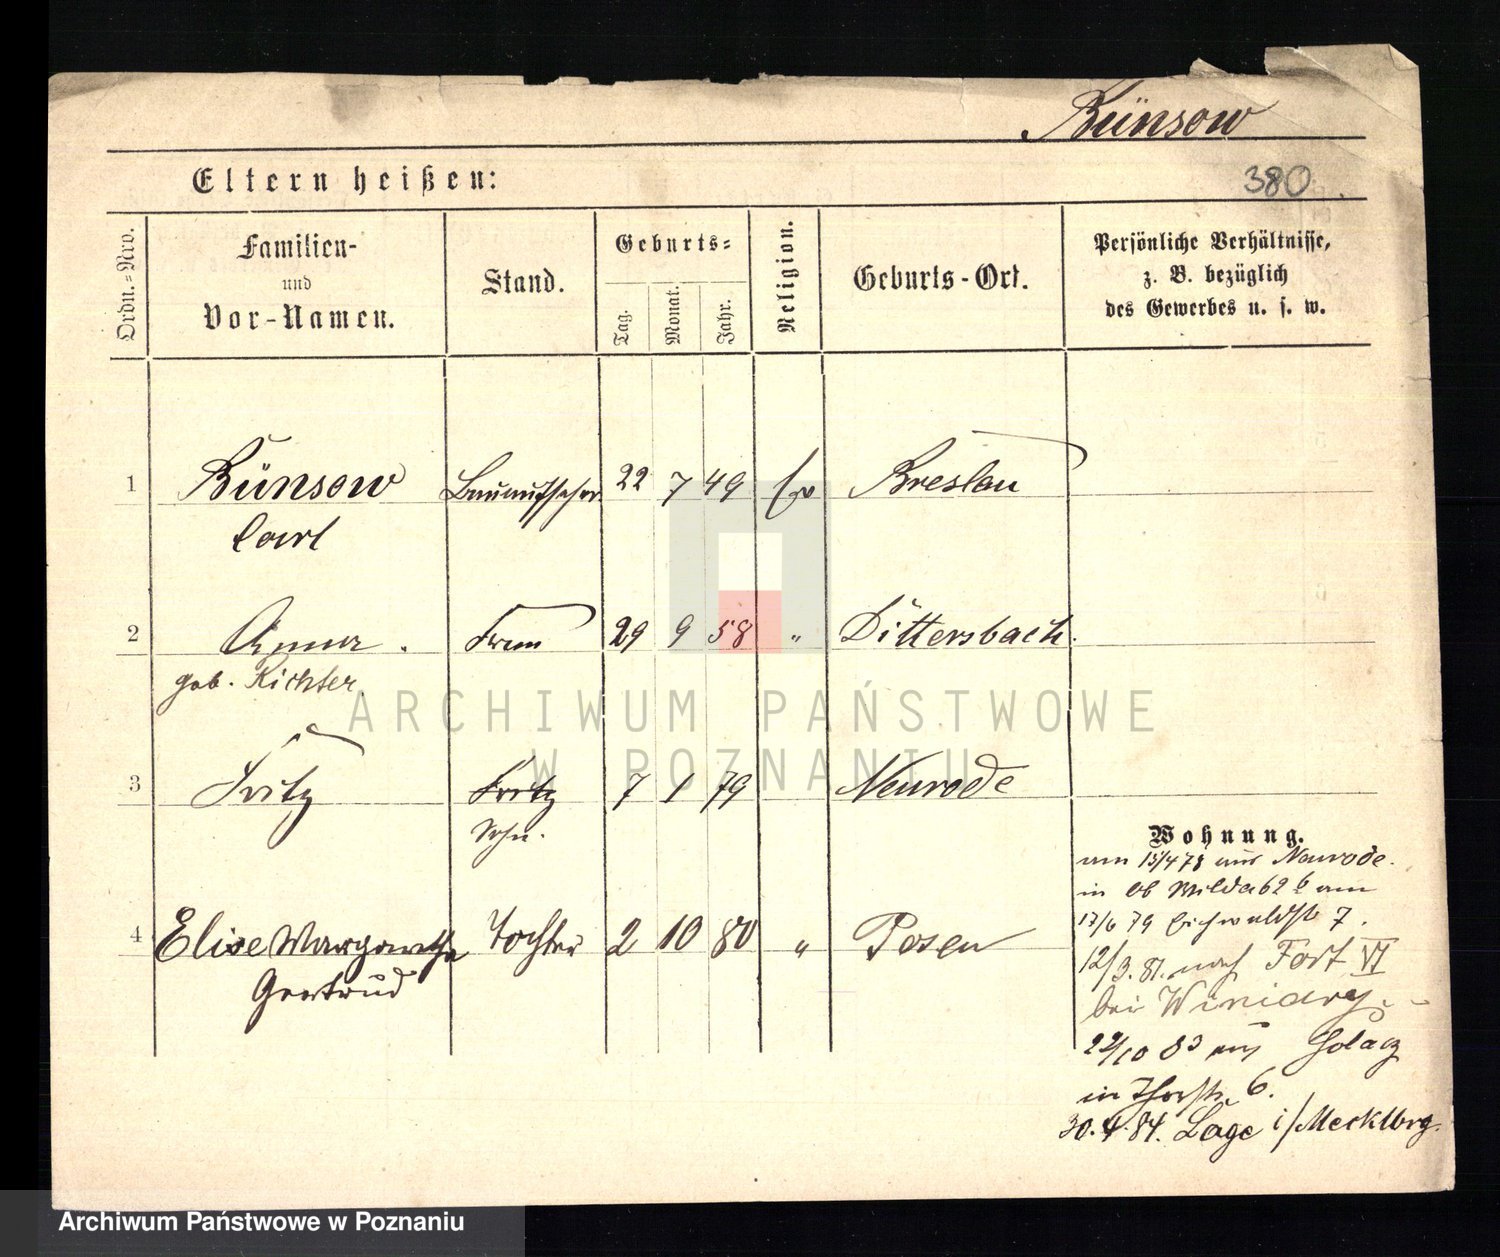 Bünsow
Eltern heißen:
380
Ordn.=Nro.
Familien-
und
Vor-Namen.
Stand.
Geburts=
Tag.
Monat.
Jahr.
Religion.
Geburts-Ort.
Persönliche Verhältnisse,
z. B. bezüglich
des Gewerbes u. s. w.
1 Bünsow Bauaufseher 22 7 49 Ev Breslau
Carl
2 Anna. Frau 29 9 58 " Dittersbach.
geb. Richter
3 Fritz Fritz 7 1 79 Neurode
Sohn.
4 Elise Margarethe Tochter 2 10 80 " Posen
Gertrud
Wohnung.
am 15/4 78 aus Neurode.
in Ob Wilda 62 b am
17/6 79 Eichwaldstr 7.
12/3. 81. nach Fort VI
bei Winiary.
22/10 83 aus Golacz
in 6.
30.4.84. Lage i/Mecklbrg.
ARCHIWUM PAŃSTWOWE
W POZNANIU
Archiwum Państwowe w Poznaniu